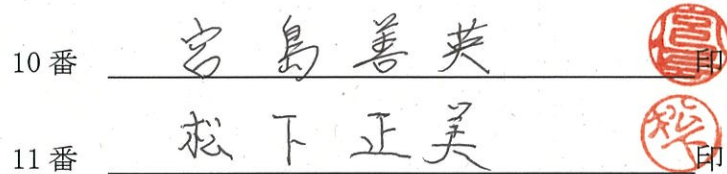 10番 宮島善英 宮島 印
11番 松下正美 松下 印